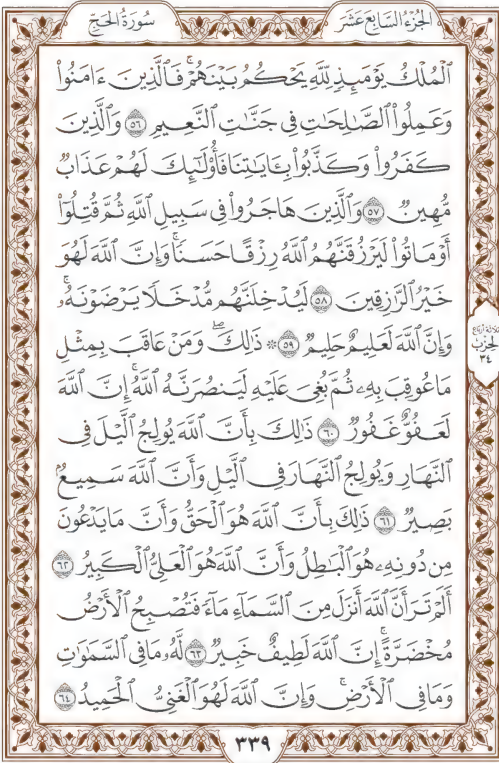 الجُزْءُ السَّابِعَ عَشَرَ
سُورَةُ الحَجِّ
ٱلْمُلْكُ يَوْمَئِذٍ لِّلَّهِ يَحْكُمُ بَيْنَهُمْ ۚ فَٱلَّذِينَ ءَامَنُوا۟
وَعَمِلُوا۟ ٱلصَّٰلِحَٰتِ فِى جَنَّٰتِ ٱلنَّعِيمِ ٥٦ وَٱلَّذِينَ
كَفَرُوا۟ وَكَذَّبُوا۟ بِـَٔايَٰتِنَا فَأُو۟لَٰٓئِكَ لَهُمْ عَذَابٌ
مُّهِينٌ ٥٧ وَٱلَّذِينَ هَاجَرُوا۟ فِى سَبِيلِ ٱللَّهِ ثُمَّ قُتِلُوٓا۟
أَوْ مَاتُوا۟ لَيَرْزُقَنَّهُمُ ٱللَّهُ رِزْقًا حَسَنًا ۚ وَإِنَّ ٱللَّهَ لَهُوَ
خَيْرُ ٱلرَّٰزِقِينَ ٥٨ لَيُدْخِلَنَّهُم مُّدْخَلًا يَرْضَوْنَهُۥ ۗ
وَإِنَّ ٱللَّهَ لَعَلِيمٌ حَلِيمٌ ٥٩ ۞ ذَٰلِكَ ۖ وَمَنْ عَاقَبَ بِمِثْلِ
مَا عُوقِبَ بِهِۦ ثُمَّ بُغِىَ عَلَيْهِ لَيَنصُرَنَّهُ ٱللَّهُ ۗ إِنَّ ٱللَّهَ
لَعَفُوٌّ غَفُورٌ ٦٠ ذَٰلِكَ بِأَنَّ ٱللَّهَ يُولِجُ ٱلَّيْلَ فِى
ٱلنَّهَارِ وَيُولِجُ ٱلنَّهَارَ فِى ٱلَّيْلِ وَأَنَّ ٱللَّهَ سَمِيعٌۢ
بَصِيرٌ ٦١ ذَٰلِكَ بِأَنَّ ٱللَّهَ هُوَ ٱلْحَقُّ وَأَنَّ مَا يَدْعُونَ
مِن دُونِهِۦ هُوَ ٱلْبَٰطِلُ وَأَنَّ ٱللَّهَ هُوَ ٱلْعَلِىُّ ٱلْكَبِيرُ ٦٢
أَلَمْ تَرَ أَنَّ ٱللَّهَ أَنزَلَ مِنَ ٱلسَّمَآءِ مَآءً فَتُصْبِحُ ٱلْأَرْضُ
مُخْضَرَّةً ۗ إِنَّ ٱللَّهَ لَطِيفٌ خَبِيرٌ ٦٣ لَّهُۥ مَا فِى ٱلسَّمَٰوَٰتِ
وَمَا فِى ٱلْأَرْضِ ۗ وَإِنَّ ٱللَّهَ لَهُوَ ٱلْغَنِىُّ ٱلْحَمِيدُ ٦٤
ثلاثة أرباع
الحزب
٣٤
٣٣٩